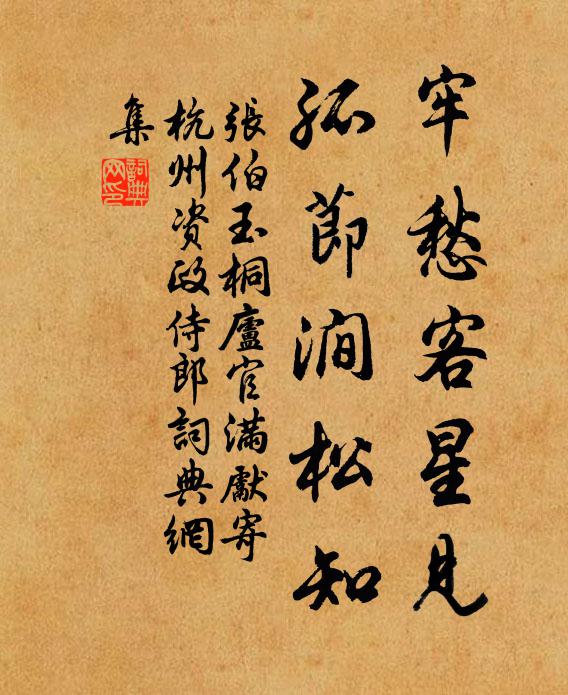 牢愁客星見
孤節澗松知
張伯玉桐廬官滿獻寄
杭州資政侍郎詞典網
集
詞典网印